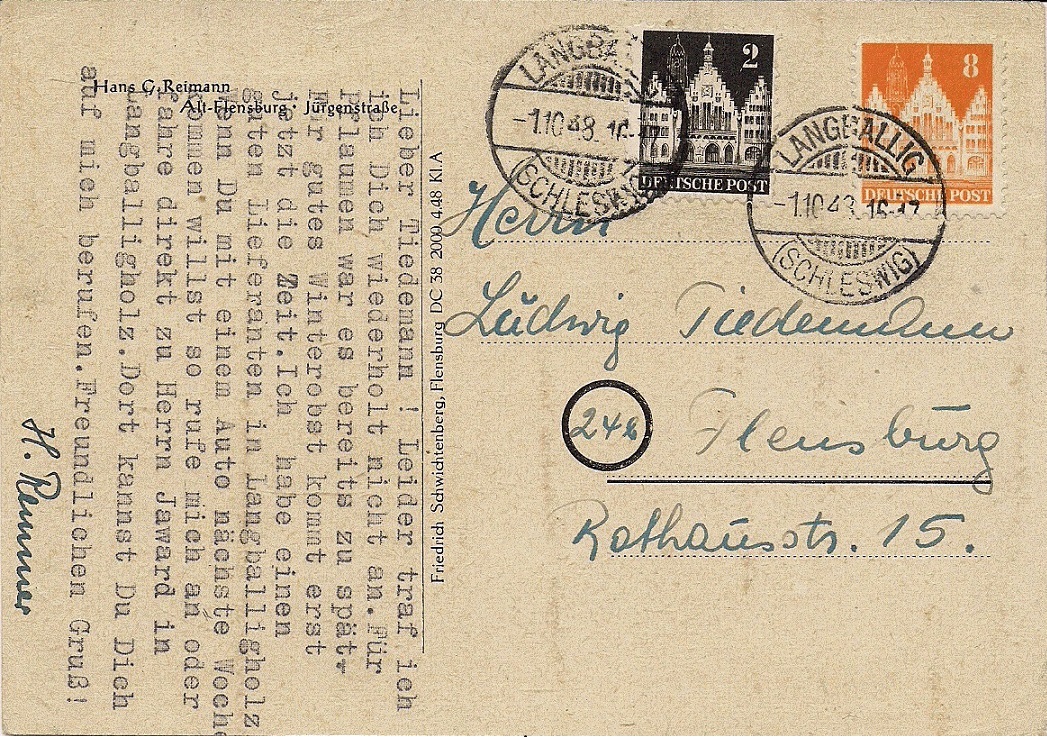 Hans G. Reimann
Alt-Flensburg · Jürgenstraße
Lieber Tiedemann ! Leider traf ich
ich Dich wiederholt nicht an.Für
Pflaumen war es bereits zu spät.
Für gutes Winterobst kommt erst
jetzt die Zeit.Ich habe einen
guten Lieferanten in Langballigholz
Wenn Du mit einem Auto nächste Woche
kommen willst so rufe mich an oder
fahre direkt zu Herrn Jaward in
Langballigholz.Dort kannst Du Dich
auf mich berufen.Freundlichen Gruß!
H.
Friedrich Schwichtenberg, Flensburg DC 38 2000 4.48 Kl.A
LANGBALLIG
-1.10.48.16-17
(SCHLESWIG)
2
DEUTSCHE POST
8
DEUTSCHE POST
LANGBALLIG
-1.10.48.16-17
(SCHLESWIG)
Herrn
Ludwig Tiedemann
24b
Flensburg
Rathausstr. 15.